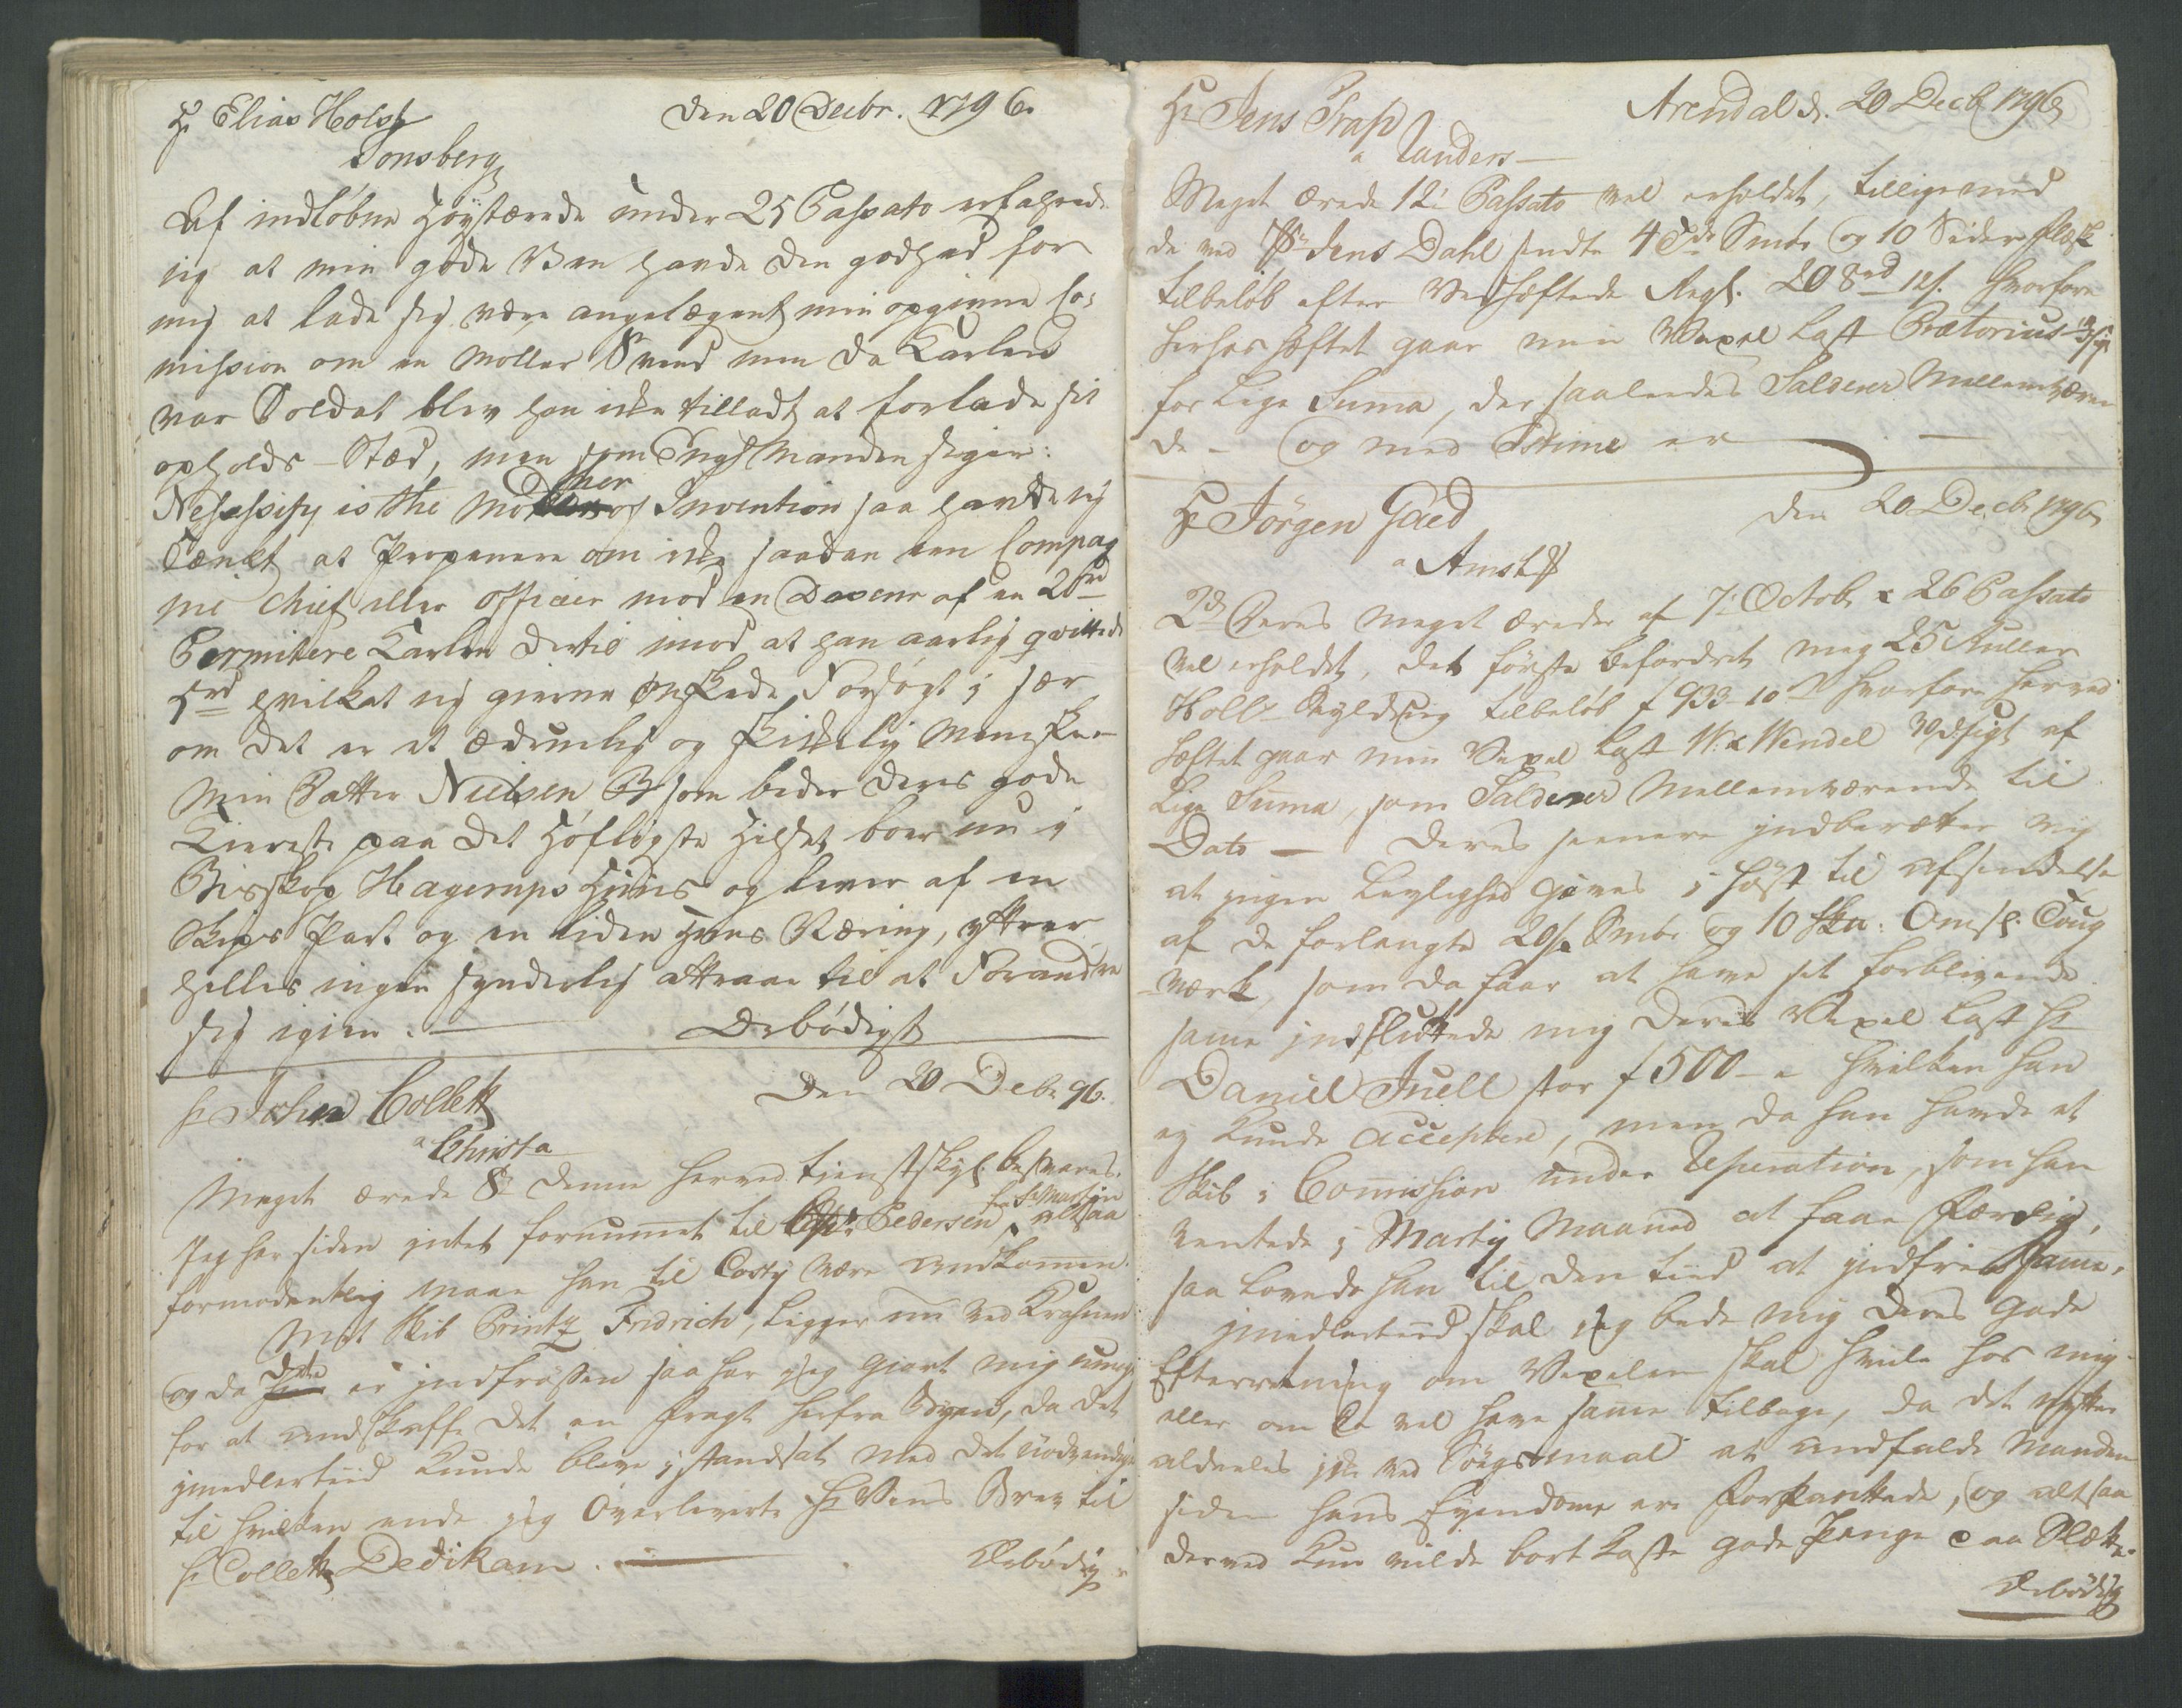 Hr Elias Holst den 20 Decbr. 1796.
Tonsberg
Af indløbne Høystærede under 25 Passato erfahrede
jeg at min gode Ven havde den godhed for
mig at lade sig være angelægent min opgivne Co-
mission om en Møller Svend men da Karlen
var Soldat blev han icke tilladt at forlade sit
opholds-Stæd, men som Engl Manden siger:
Nesessity is the Mother of Invention saa havde jeg
tænkt at Proponere om icke saadan een Compag
nie Chief eller Officier mod en Douceur af en 20 rd
Permitere Karlen dertil imod at han aarlig qvitterede
5 rd hvilket jeg gierne ønskede Forsøgt i sær
om det er et ædruelig og skikkelig Menske-
Min Fatter Nielsen B som beder deres gode
Kiereste paa det Høfligste Hilset boer nu i
Bisskop Hagerups Huus og lever af en
Skips Part og en liden Huus Næring, yttrer
hellers ingen synderlig attraae til at Forandre
sig igien. — Ærbødigst
Hr John Collett Den 20 Debr 96.
a Christa
Meget ærede 8de denne herved tienstskyl. besvares.
Jeg har siden intet fornummet til Capt Pedersen fra St Martin altsaa
formodentlig maae han til Costy være andkommen.
Mit Skib Printz Fridrich, ligger nu ved Krahnen
og da dette er indfrossen saa har jeg giort mig umage
for at andskaffe det en Fragt herfra Byen, da det
imedlertiid kunde blive i standsat med det nødvendige
til hvilken ende jeg Overleverte Hr Vens Brev til
Hr Collett Dedikam. — Ærbødig

Hr Jens Trap Arendal d. 20 Decb 1796
a Randers —
Meget ærede 12te Passato vel erholdet, tilligemed
de ved Sr Jens Dahl sendte 4 Tdr Smør og 10 Sider Flesk
tilbeløb efter Vedhæftede Regl. 208 rd 12 s. hvorfore
hershos hæftet gaar min Vexel Last Prætorius
for lige Suma, der saaledes Salderer Mellemværen
de - og med Estime er —
Hr Jørgen Gad den 20 Decb 1796
a Amst
2de Deres meget ærede af 7de Octobr & 26 Passato
vel erholdet, det første befordret meg 25 Ruller
Holl. Seyldug tilbeløb f 933-10 hvorfore herved
hæftet gaar min Vexel Last W. & Wendel Udsigt af
lige Suma, som Salderer Mellemværende til
Dato — Deres seenere indberetter mig
at ingen Leylighed gives i Høst til afsendelse
af de forlangte 20 Smør og 10 Sk℔: Omsl. Toug
-værk, som da faar at have sit forblivende
same indsluttede mig deris Vexel Last Hr
Daniel Juell stor f 500 - hvilken han
ey kunde acceptere, men da han havde et
Skib i Commission under Reparation, som han
ventede i Marty Maaned at faae Færdig,
saa lovede han til den tiid at indfrie same,
imedlertiid skal jeg bede mig deres gode
Efterretning om Vexelen skal hvile hos mig
eller om De vel have same tilbage, da det nytter
aldeeles icke ved Søgsmaal at andfalde Manden
siden hans Eyendome ere forpanttede, og altsaa
derved kun vilde bort kaste gode Penge paa Slette
Ærbødig